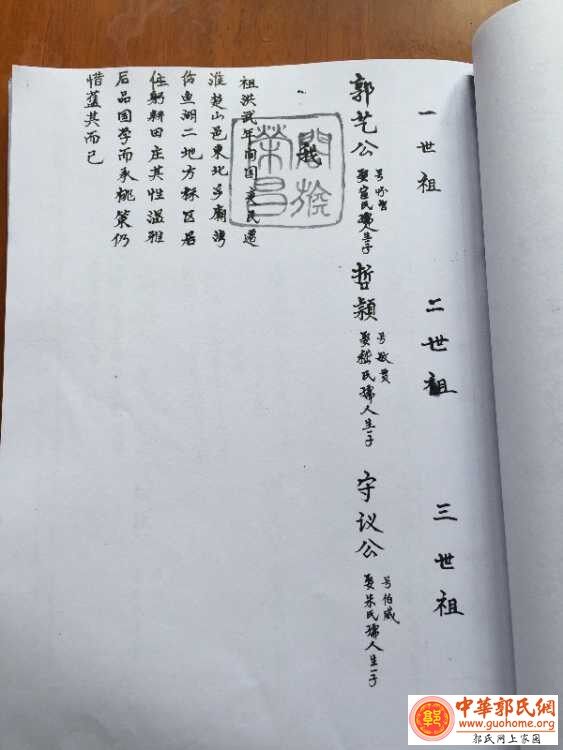 一世祖
二世祖
三世祖
郭艺公
娶宣氏孺人生一子
哲颖
号敬贵
娶嵇氏孺人生一子
守议公
号伯威
娶朱氏孺人生一子
我
祖洪武年间因公民遷
淮楚山邑東北乡廟湾
佑魚湖二地方標区居
住躬耕田庄其性温雅
后品国学而承桃策仍
惜蓝其而已
閤族榮昌
中華郭氏網
www.guohome.org
郭氏网上家園